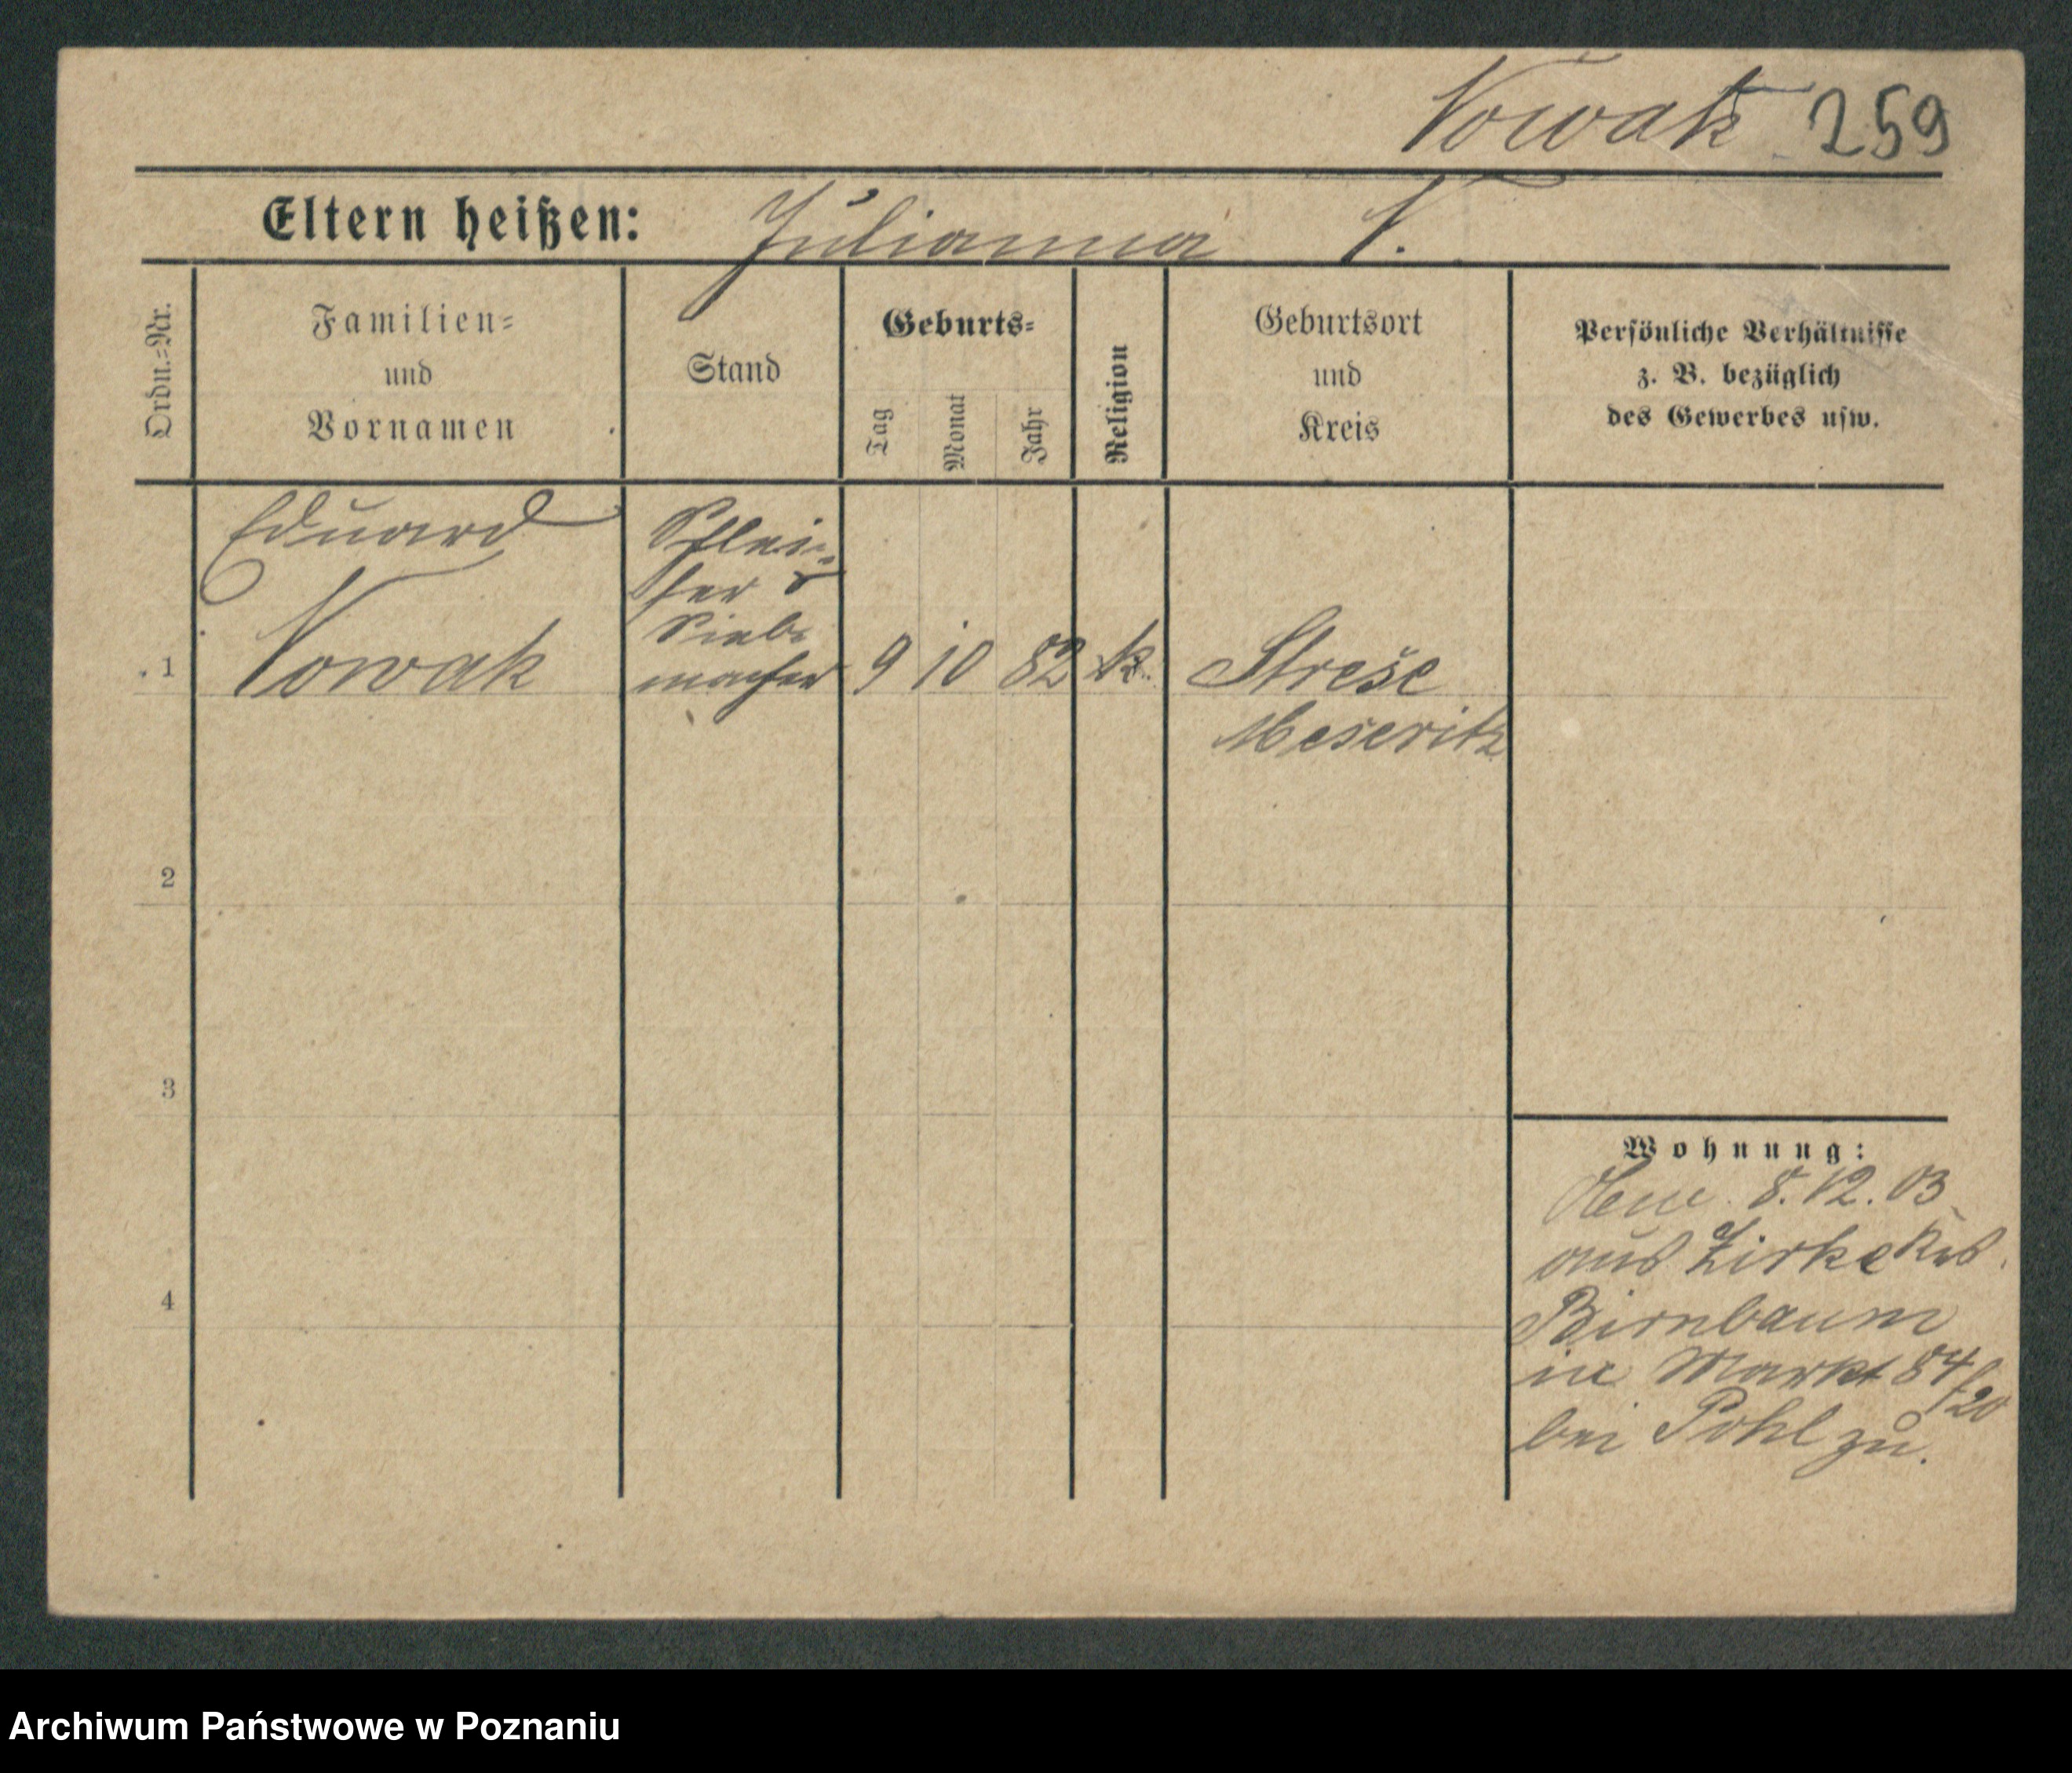 Nowak 259
Eltern heißen: Julianna N.
Ordn.-Nr.
Familien-
und
Vornamen
Stand
Geburts-
Tag
Monat
Jahr
Religion
Geburtsort
und
Kreis
Persönliche Verhältnisse
z. B. bezüglich
des Gewerbes usw.
Eduard
Nowak
Schlei-
fer &
Sieb-
macher
1
9 10 82 k.
Strese
Meseritz
2
3
4
Wohnung:
8.12.03
aus Zirke Krs.
Birnbaum
in Markt 84/20
bei Pohl zu.
Archiwum Państwowe w Poznaniu